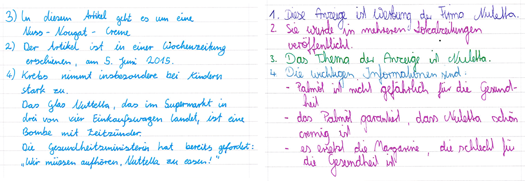 3) In diesem Artikel geht es um eine
Nuss-Nougat-Creme
2) Der Artikel ist in einer Wochenzeitung
erschienen, am 5. Juni 2015.
4) Krebs nimmt insbesondere bei Kindern
stark zu.
Das Glas Nuttella, das im Supermarkt in
drei von vier Einkaufswagen landet, ist eine
Bombe mit Zeitzünder.
Die Gesundheitsministerin hat bereits gefordert:
"Wir müssen aufhören, Nuttella zu essen!"
1. Diese Anzeige ist Werbung der Firma Nuletta.
2. Sie wurde in mehreren Lokalzeitungen
veröffentlicht.
3. Das Thema der Anzeige ist Nuletta.
4. Die wichtigen Informationen sind:
- Palmöl ist nicht gefährlich für die Gesund-
heit
- das Palmöl garantiert, dass Nuletta schön
cremig ist
- es ersetzt die Margarine, die schlecht für
die Gesundheit ist